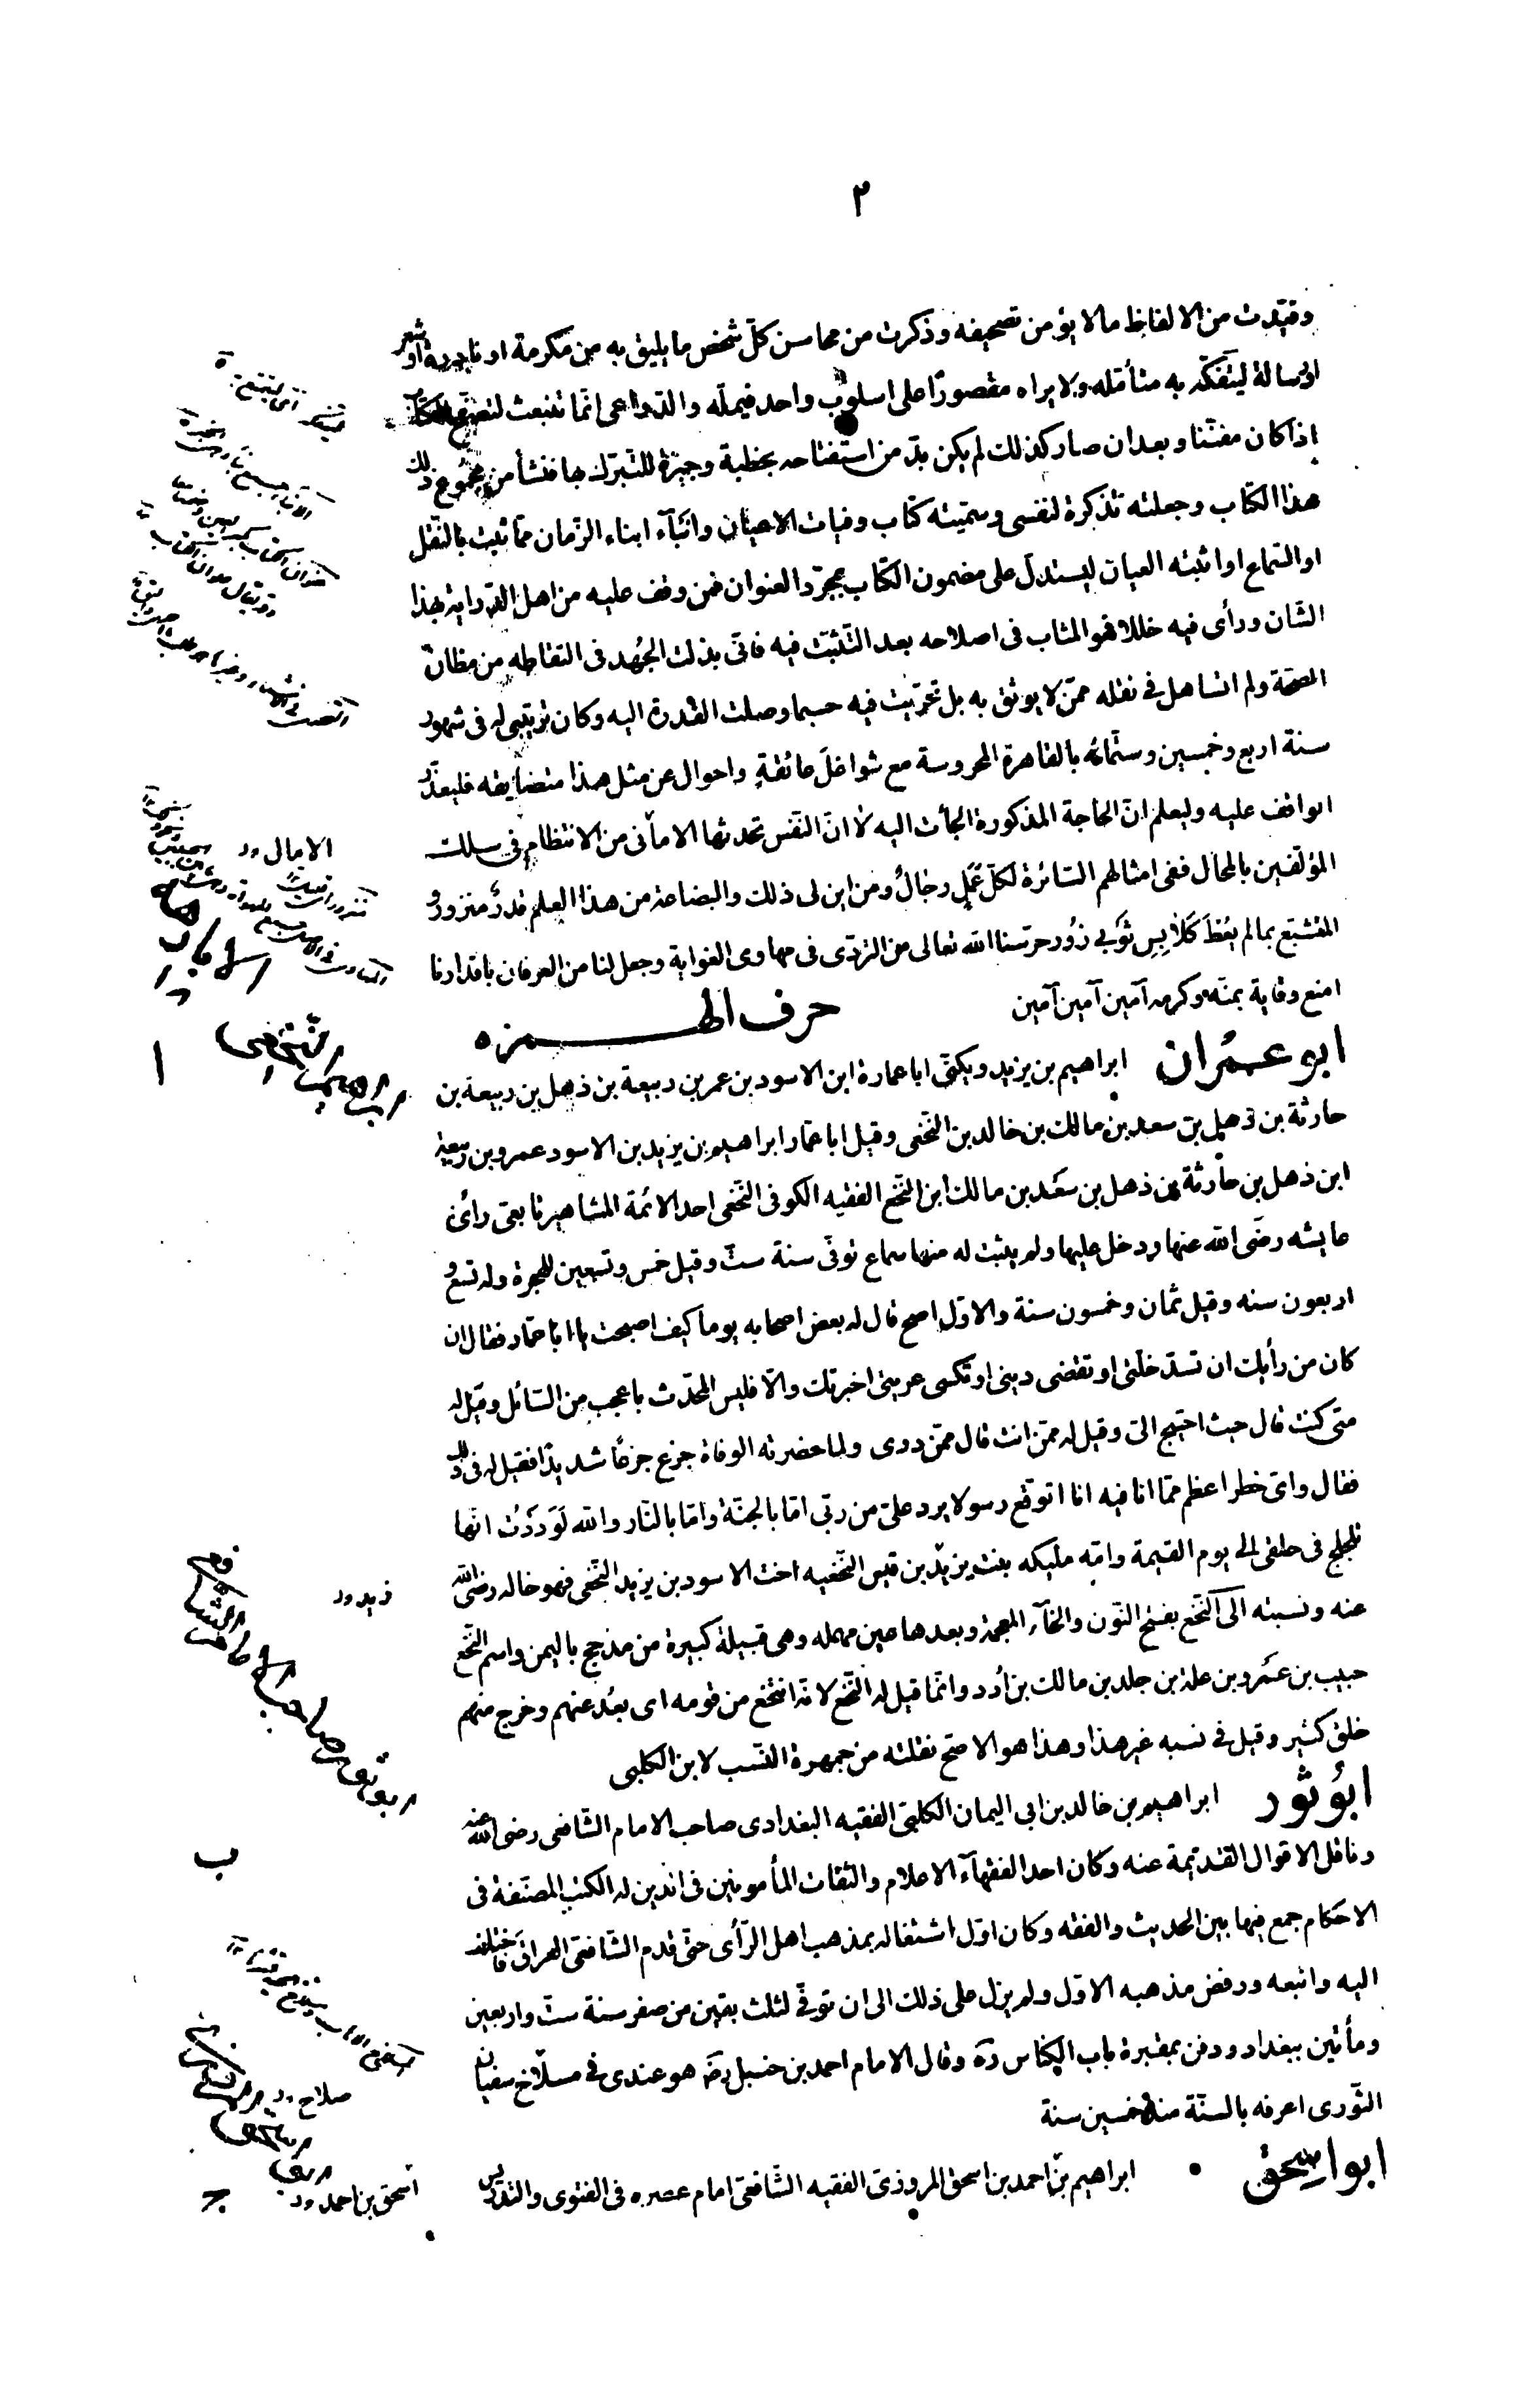 ٢
وقيّدت من الالفاظ مالا يؤمن تصحيفه وذكرت من محاسن كلّ شخص ما يليق به من مكرمة او نادرة او شعر
او رسالة ليتفكّه به متأمّله ولا يراه مقصورًا على اسلوب واحد فيملّه والدّواعى انّما تنبعث لتصفّح الكتاب
اذا كان مفنّنا وبعد ان صار كذلك لم يكن بدّ من استفتاحه بخطبة وجيزة للتبرّك بها فنشأ من مجموع ذلك
هذا الكتاب وجعلته تذكرة لنفسى وسمّيته كتاب وفيات الاعيان وانبآء ابناء الزّمان ممّا ثبت بالنّقل
او السّماع او اثبته العيان ليستدلّ على مضمون الكتاب بمجرّد العنوان فمن وقف عليه من اهل الدّراية بهذا
الشّان ورأى فيه خللا فهو المثاب فى اصلاحه بعد التّثبّت فيه فانّى بذلت الجُهد فى التقاطه من مظانّ
الصحّة ولم اتساهل فى نقله ممّن لا يوثق به بل تحرّيت فيه حسبما وصلت القدرة اليه وكان ترتيبى له فى شهور
سنة اربع وخمسين وستّمائه بالقاهرة المحروسة مع شواغلَ عائقةٍ واحوال عن مثل هذا متضايقه فليعذر
الواقف عليه وليعلم انّ الحاجة المذكورة الجأت اليه لا انّ النّفس تحدثها الامانى من الانتظام فى سلك
المؤلّفين بالمحال ففى امثالهم السّائرة لكلّ عَمَلٍ رجالٌ ومن اين لى ذلك والبضاعة من هذا العلم قدرٌ منزور و
المتشبّع بما لم يُعْطَ كَلَابِسِ ثَوبى زُور حرسنا الله تعالى من التردّى فى مهاوى الغواية وجعل لنا من العرفان باقدارنا
امنع وقاية بمنّه وكرمه آمين آمين آمين
حرف الهمزه
ابو عمران ابراهيم بن يزيد ويكنّى ابا عمارة ابن الاسود بن عمر بن ربيعة بن ذهل بن ربيعة بن
حارثة بن ذهل بن سعد بن مالك بن خالد بن النّخعى وقيل ابا عمّار ابراهيم بن يزيد بن الاسود عمرو بن ربيعة
ابن ذهل بن حارثة بن ذهل بن سعد بن مالك ابن النّخع الفقيه الكوفى النّخعى احد الائمّة المشاهير تابعىّ رأى
عايشه رضى الله عنها ودخل عليها ولم يثبت له منها سماع توفّى سنة ستّ وقيل خمس وتسعين للهجرة وله تسع و
اربعون سنه وقيل ثمان وخمسون سنة والاوّل اصح قال له بعض اصحابه يوما كيف اصبحت يا ابا عمّار فقال ان
كان من رأيك ان تسدّ خلّتى او تقضى دينى او تكسى عريتى اخبرتك والّا فليس المحدّث باعجب من السّائل وقيل له
متى كنت قال حيث احتيج الىّ وقيل له ممّن انت قال ممّن روى ولما حضرته الوفاة جزع جزعًا شديدًا فقيل له فى ذلك
فقال واىّ خطر اعظم ممّا انا فيه انا اتوقّع رسولا يرد علىّ من ربّى امّا بالجنّة وامّا بالنّار والله لَوَدَدْتُ انّها
تلجلج فى حلقى الى يوم القيمة وامّه مليكه بنت يزيد بن قيس النّخعيه اخت الاسود بن يزيد النّخعى فهو خاله رضى الله
عنه ونسبته الى النّخع بفتح النّون والخآء المعجمة وبعدها عين مهمله وهى قبيلة كبيرة من مذحج باليمن واسم النّخع
حبيب بن عمرو بن علة بن جلد بن مالك بن أدد وانّما قيل له النّخع لانه انتخع من قومه اى بعُد عنهم وخرج منهم
خلق كثير وقيل فى نسبه غير هذا وهذا هو الاصحّ نقلته من جمهرة النّسب لابن الكلبى
ابو ثور ابراهيم بن خالد بن ابى اليمان الكلبىّ الفقيه البغدادى صاحب الامام الشّافعى رضى الله عنه
وناقل الاقوال القديمة عنه وكان احد الفقهآء الاعلام والثّقات المأمونين فى الدين له الكتب المصنّفة فى
الاحكام جمع فيها بين الحديث والفقه وكان اوّل اشتغاله بمذهب اهل الرّأى حتّى قدم الشّافعىّ العراق فاختلف
اليه واتبعه ورفض مذهبه الاوّل ولم يزل على ذلك الى ان توفّى لثلث بقين من صفر سنة ستّ واربعين
ومأتين ببغداد ودفن بمقبرة باب الكناس رة وقال الامام احمد بن حنبل رضه هو عندى فى مسلاخ سفيان
الثّورى اعرفه بالسنّة منذ خمسين سنة
ابو اسحق ابراهيم بن احمد بن اسحق المروزىّ الفقيه الشّافعىّ امام عصره فى الفتوى والتّدريس
الامال ور
ابراهيم النخعى
ا
فريد ور
ابو ثور صاحب الامام الشافعى
ب
صلاح ور
ابو اسحق المروزى
اسحق بن احمد ور
ج